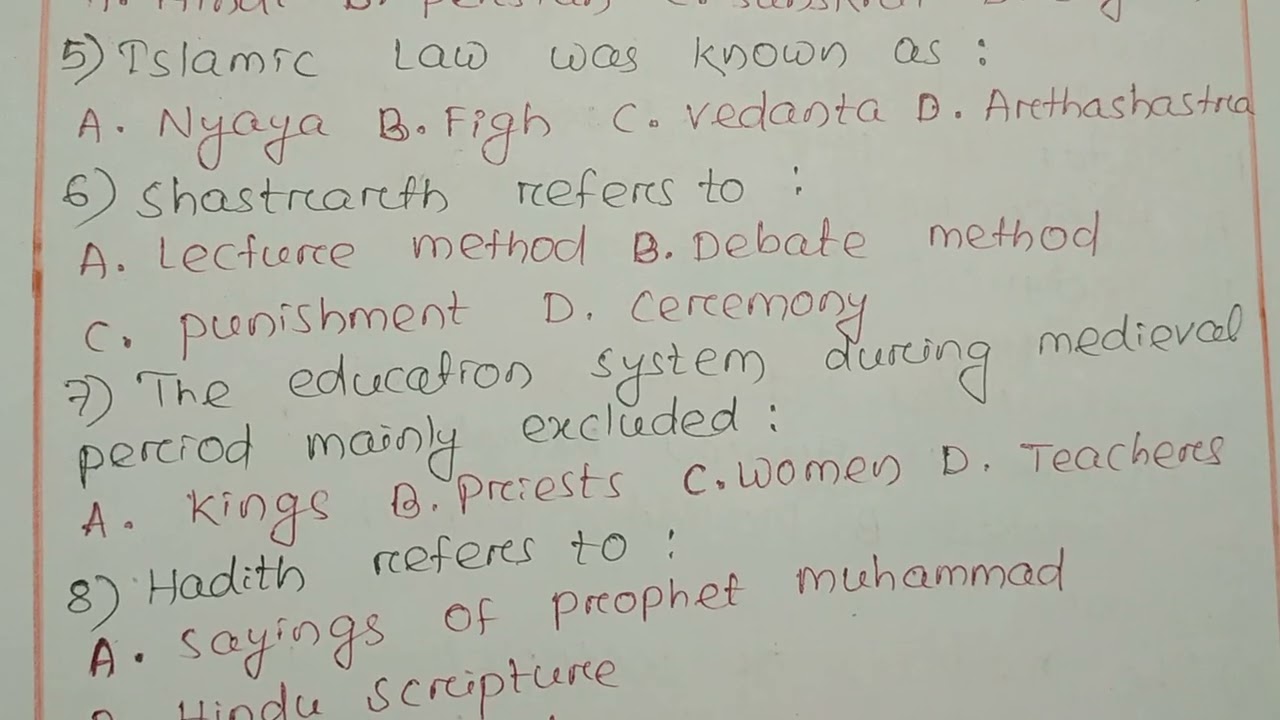 5) Islamic Law was known as :
A. Nyaya B. Figh C. vedanta D. Arethashastra
6) Shastrarth refers to :
A. Lecture method B. Debate method
C. punishment D. ceremony
7) The education system during medieval
period mainly excluded :
A. Kings B. Priests C. Women D. Teachers
8) Hadith refers to :
A. Sayings of prophet muhammad
Hindu scripture